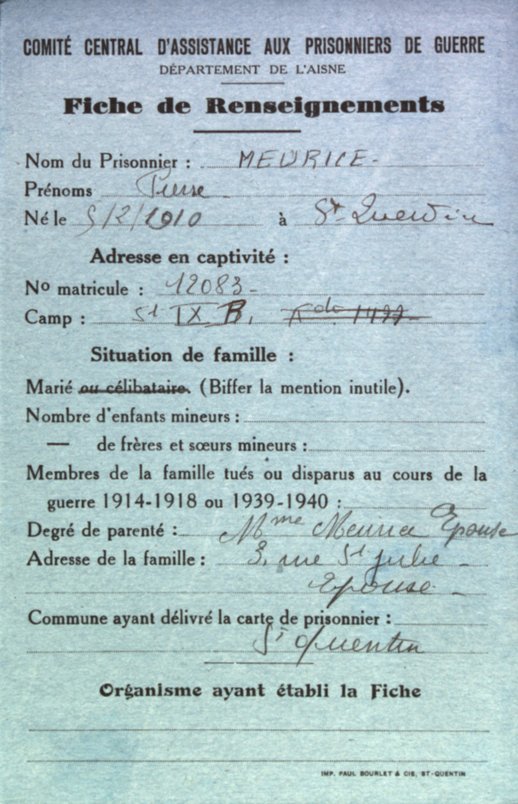 COMITÉ CENTRAL D'ASSISTANCE AUX PRISONNIERS DE GUERRE
DÉPARTEMENT DE L'AISNE
Fiche de Renseignements
Nom du Prisonnier : MEURICE-
Prénoms Pierre
Né le 5/2/1910 à St Quentin
Adresse en captivité :
No matricule : 12083-
Camp : St IX B. Kdo 1477-
Situation de famille :
Marié ou célibataire. (Biffer la mention inutile).
Nombre d'enfants mineurs :
— de frères et sœurs mineurs :
Membres de la famille tués ou disparus au cours de la
guerre 1914-1918 ou 1939-1940 :
Degré de parenté : Mme Meurice Epouse
Adresse de la famille : 3, rue St Julie -
Epouse -
Commune ayant délivré la carte de prisonnier :
St Quentin
Organisme ayant établi la Fiche
IMP. PAUL BOURLET & CIE, ST-QUENTIN